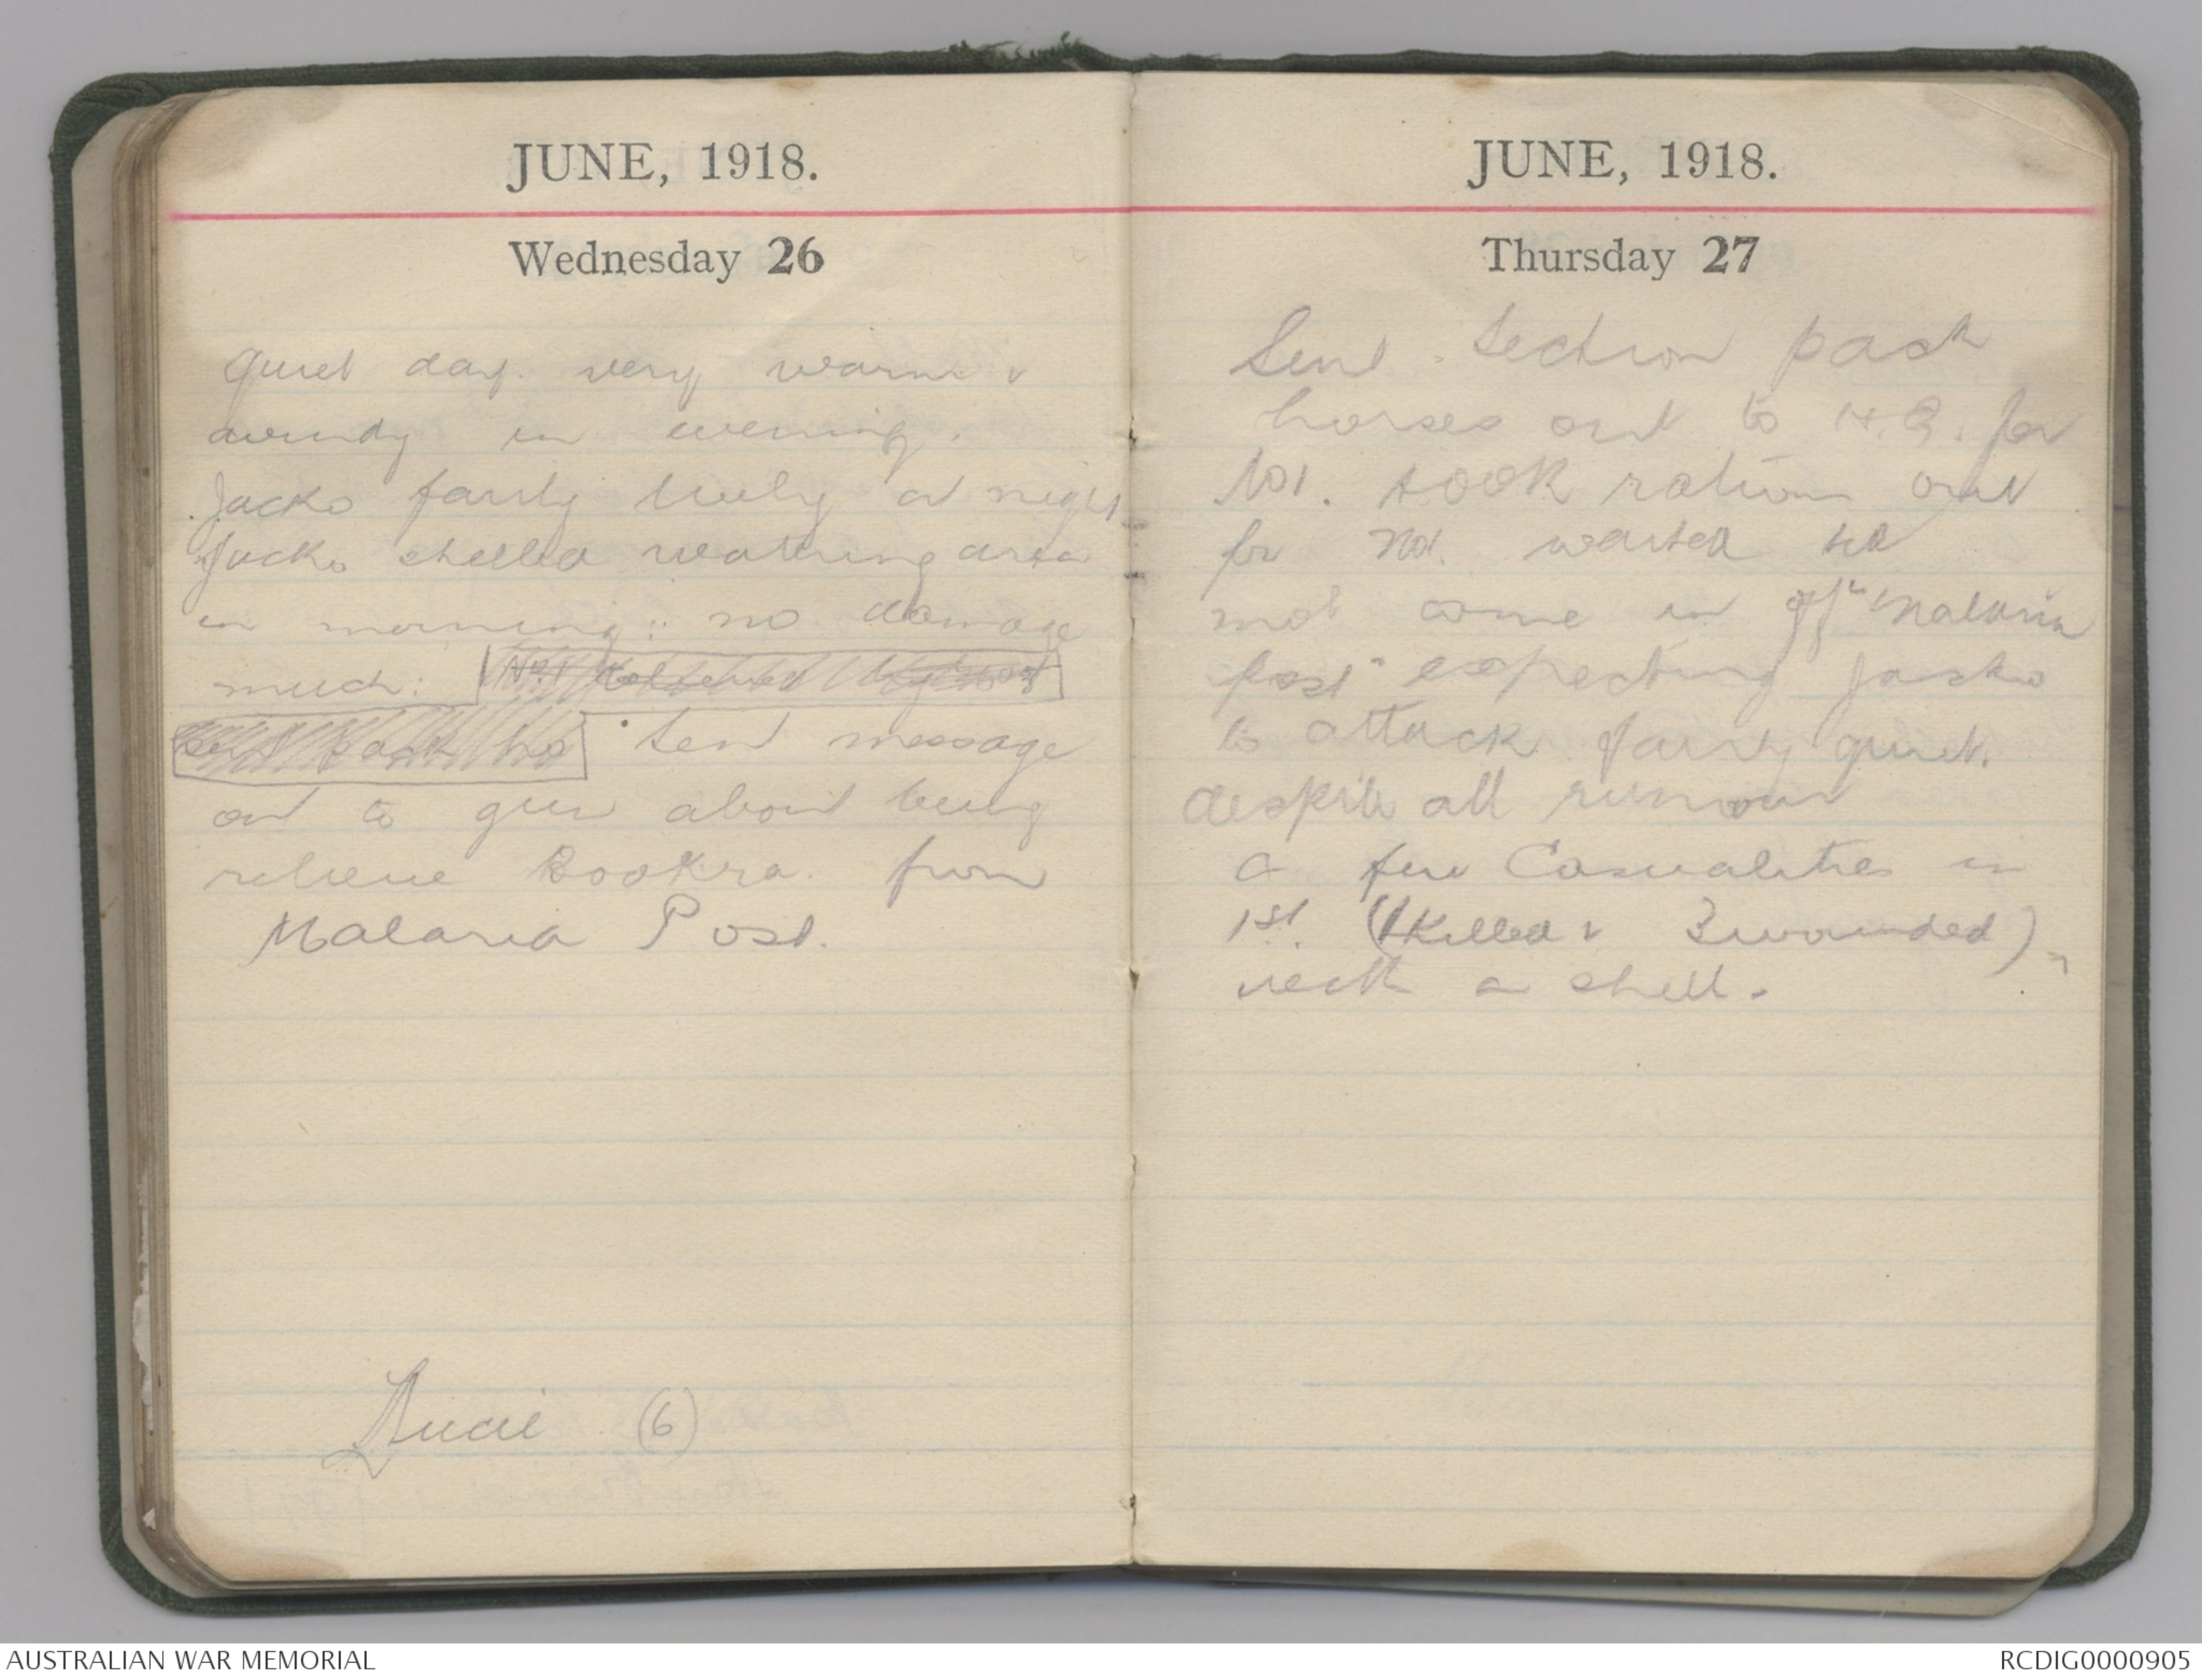 JUNE, 1918.
Wednesday 26
Quiet day. very warm &
windy in evening.
Jacko fairly lively at night
Jacko shelled watering area
in morning: no damage
much:
Sent message
out to gun about being
relieve Bookra. from
Malaria Post.
Lucie (6)
JUNE, 1918.
Thursday 27
Sent Section pack
horses out to H.Q. for
No1. took rations out
for No1. waited
not come in off "Malaria
Post" expecting Jacko
to attack fairly quiet.
despite all rumour
a few Casualties in
1st. (1 Killed & 3 wounded)
with a shell.
AUSTRALIAN WAR MEMORIAL
RCDIG0000905